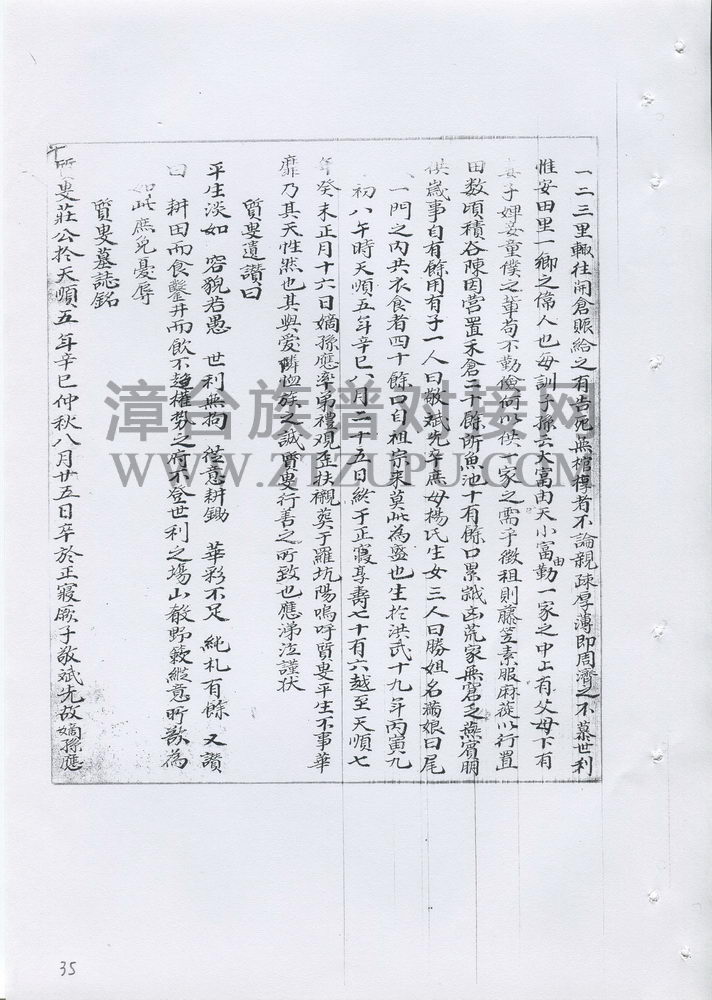 一二三里輙往開倉賑給之有告死無棺椁者不論親疎厚薄即周濟之不慕世利
惟安田里一鄉之偉人也每訓子孫云大富由天小富由勤一家之中上有父母下有
妻子婢妾童僕之輩苟不勤儉何以供一家之需乎徵租則藤笠素服麻蓰以行置
田数頃積谷陳因营置禾倉二十餘所魚池十有餘口累誠凶荒家無窘乏燕賓朋
供歲事自有餘用有子一人曰敬斌先卒庶母楊氏生女三人曰勝姐名滿娘曰尾
一門之内共衣食者四十餘口自祖宗来莫此為盛也生於洪武十九年丙寅九
初八午時天順五年辛巳八月二十五日終于正寢享壽七十有六越至天順七
年癸未正月十六日嫡孫應率弟禮觀丕扶櫬葵于羅坑陽嗚呼質叟平生不事華
靡乃其天性然也其與爱隣恤族之誠質叟行善之所致也應涕泣謹状
質叟遺讃曰
平生淡如 容貌若愚 世利無拘 從意耕鋤 華彩不足 純札有餘 又讃
曰 耕田而食鑿井而飲不趋權势之府不登世利之場山殽野蔌縱意所歡為
如此庶免憂辱
質叟墓誌銘
質叟莊公扵天順五年辛巳仲秋八月廿五日卒於正寢厥子敬斌先故嫡孫應
漳台族谱对接网
WWW.ZTZUPU.COM
35